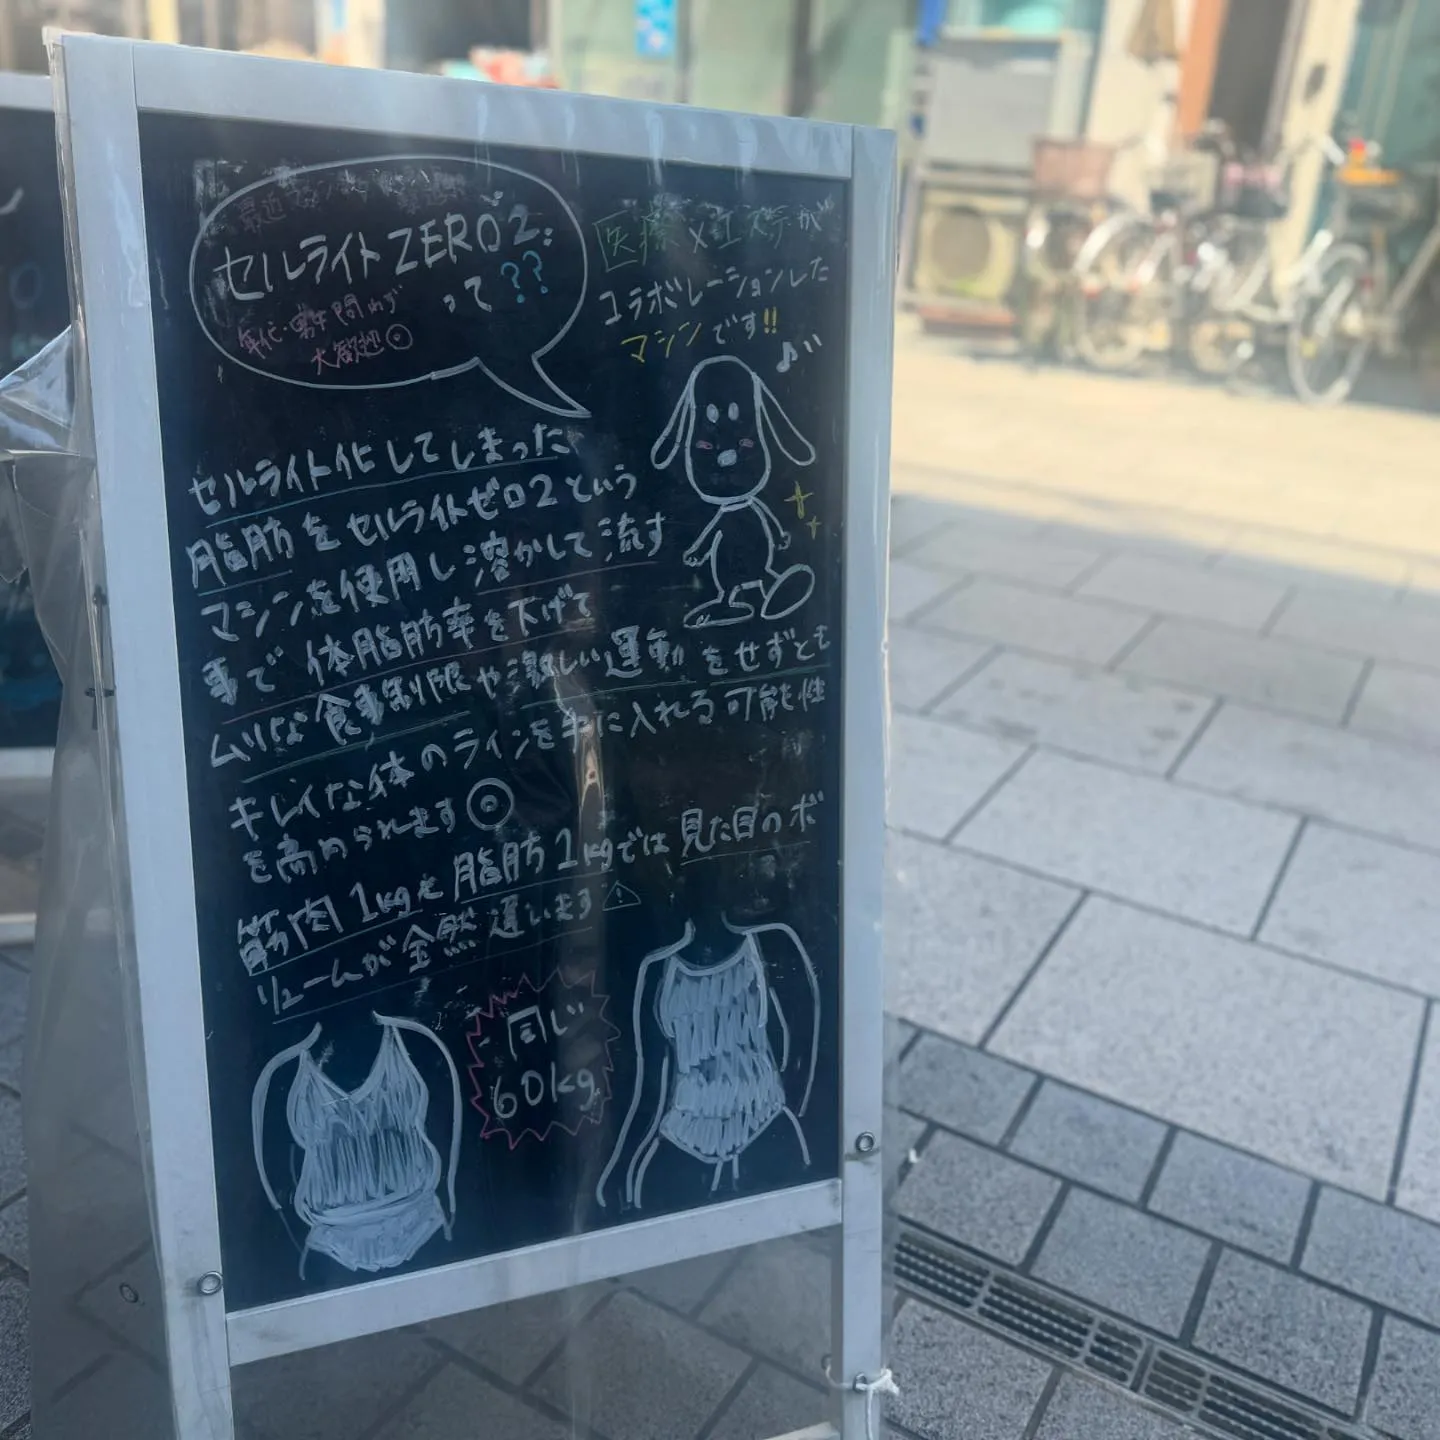 最近
セルライトZERO2
って??
年代・男女問わず
大歓迎
医療×エステが
コラボレーションした
マシンです!!
セルライト化してしまった
脂肪をセルライトゼロ2という
マシンを使用し溶かして流す
事で体脂肪率を下げて
ムリな食事制限や激しい運動をせずとも
キレイな体のラインを手に入れる可能性
を高められます
筋肉1kgと脂肪1kgでは見た目のボ
リュームが全然違います
同じ
60kg